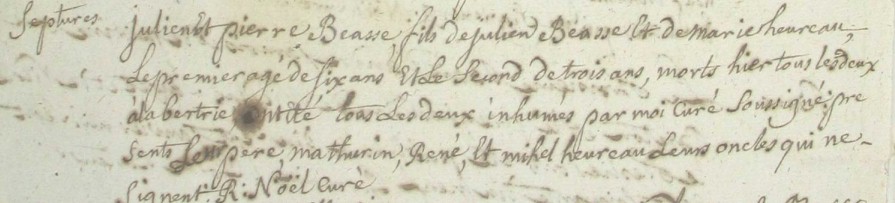 Septures julien Et pierre Beasse, fils de julien Beasse Et de marie heureau,
Le premier agé de six ans Et Le Second de trois ans, morts hier tous les deux
à la bertrie ont été tous Les deux inhumés par moi Curé Soussigné; pre
sents Leur père, mathurin, René, Et mikel heureau Leurs oncles qui ne
Signent. R: Noël Curé